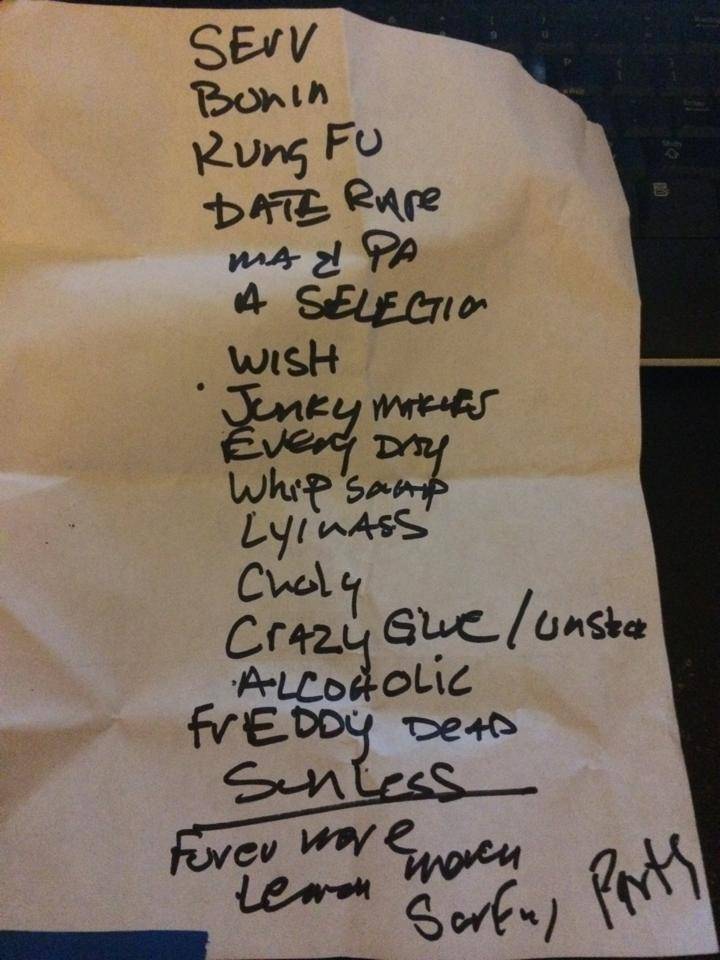 SErV
Bonin
Kung FU
DATE Rape
MA & PA
A SELECTIOn
WISH
Junky MAkes
EVEry DAy
Whip Snap
LyinASS
Choly
CrAZy Glue / unstuck
ALCOHOLIC
FrEDDy DeAD
SunLess
more
Party